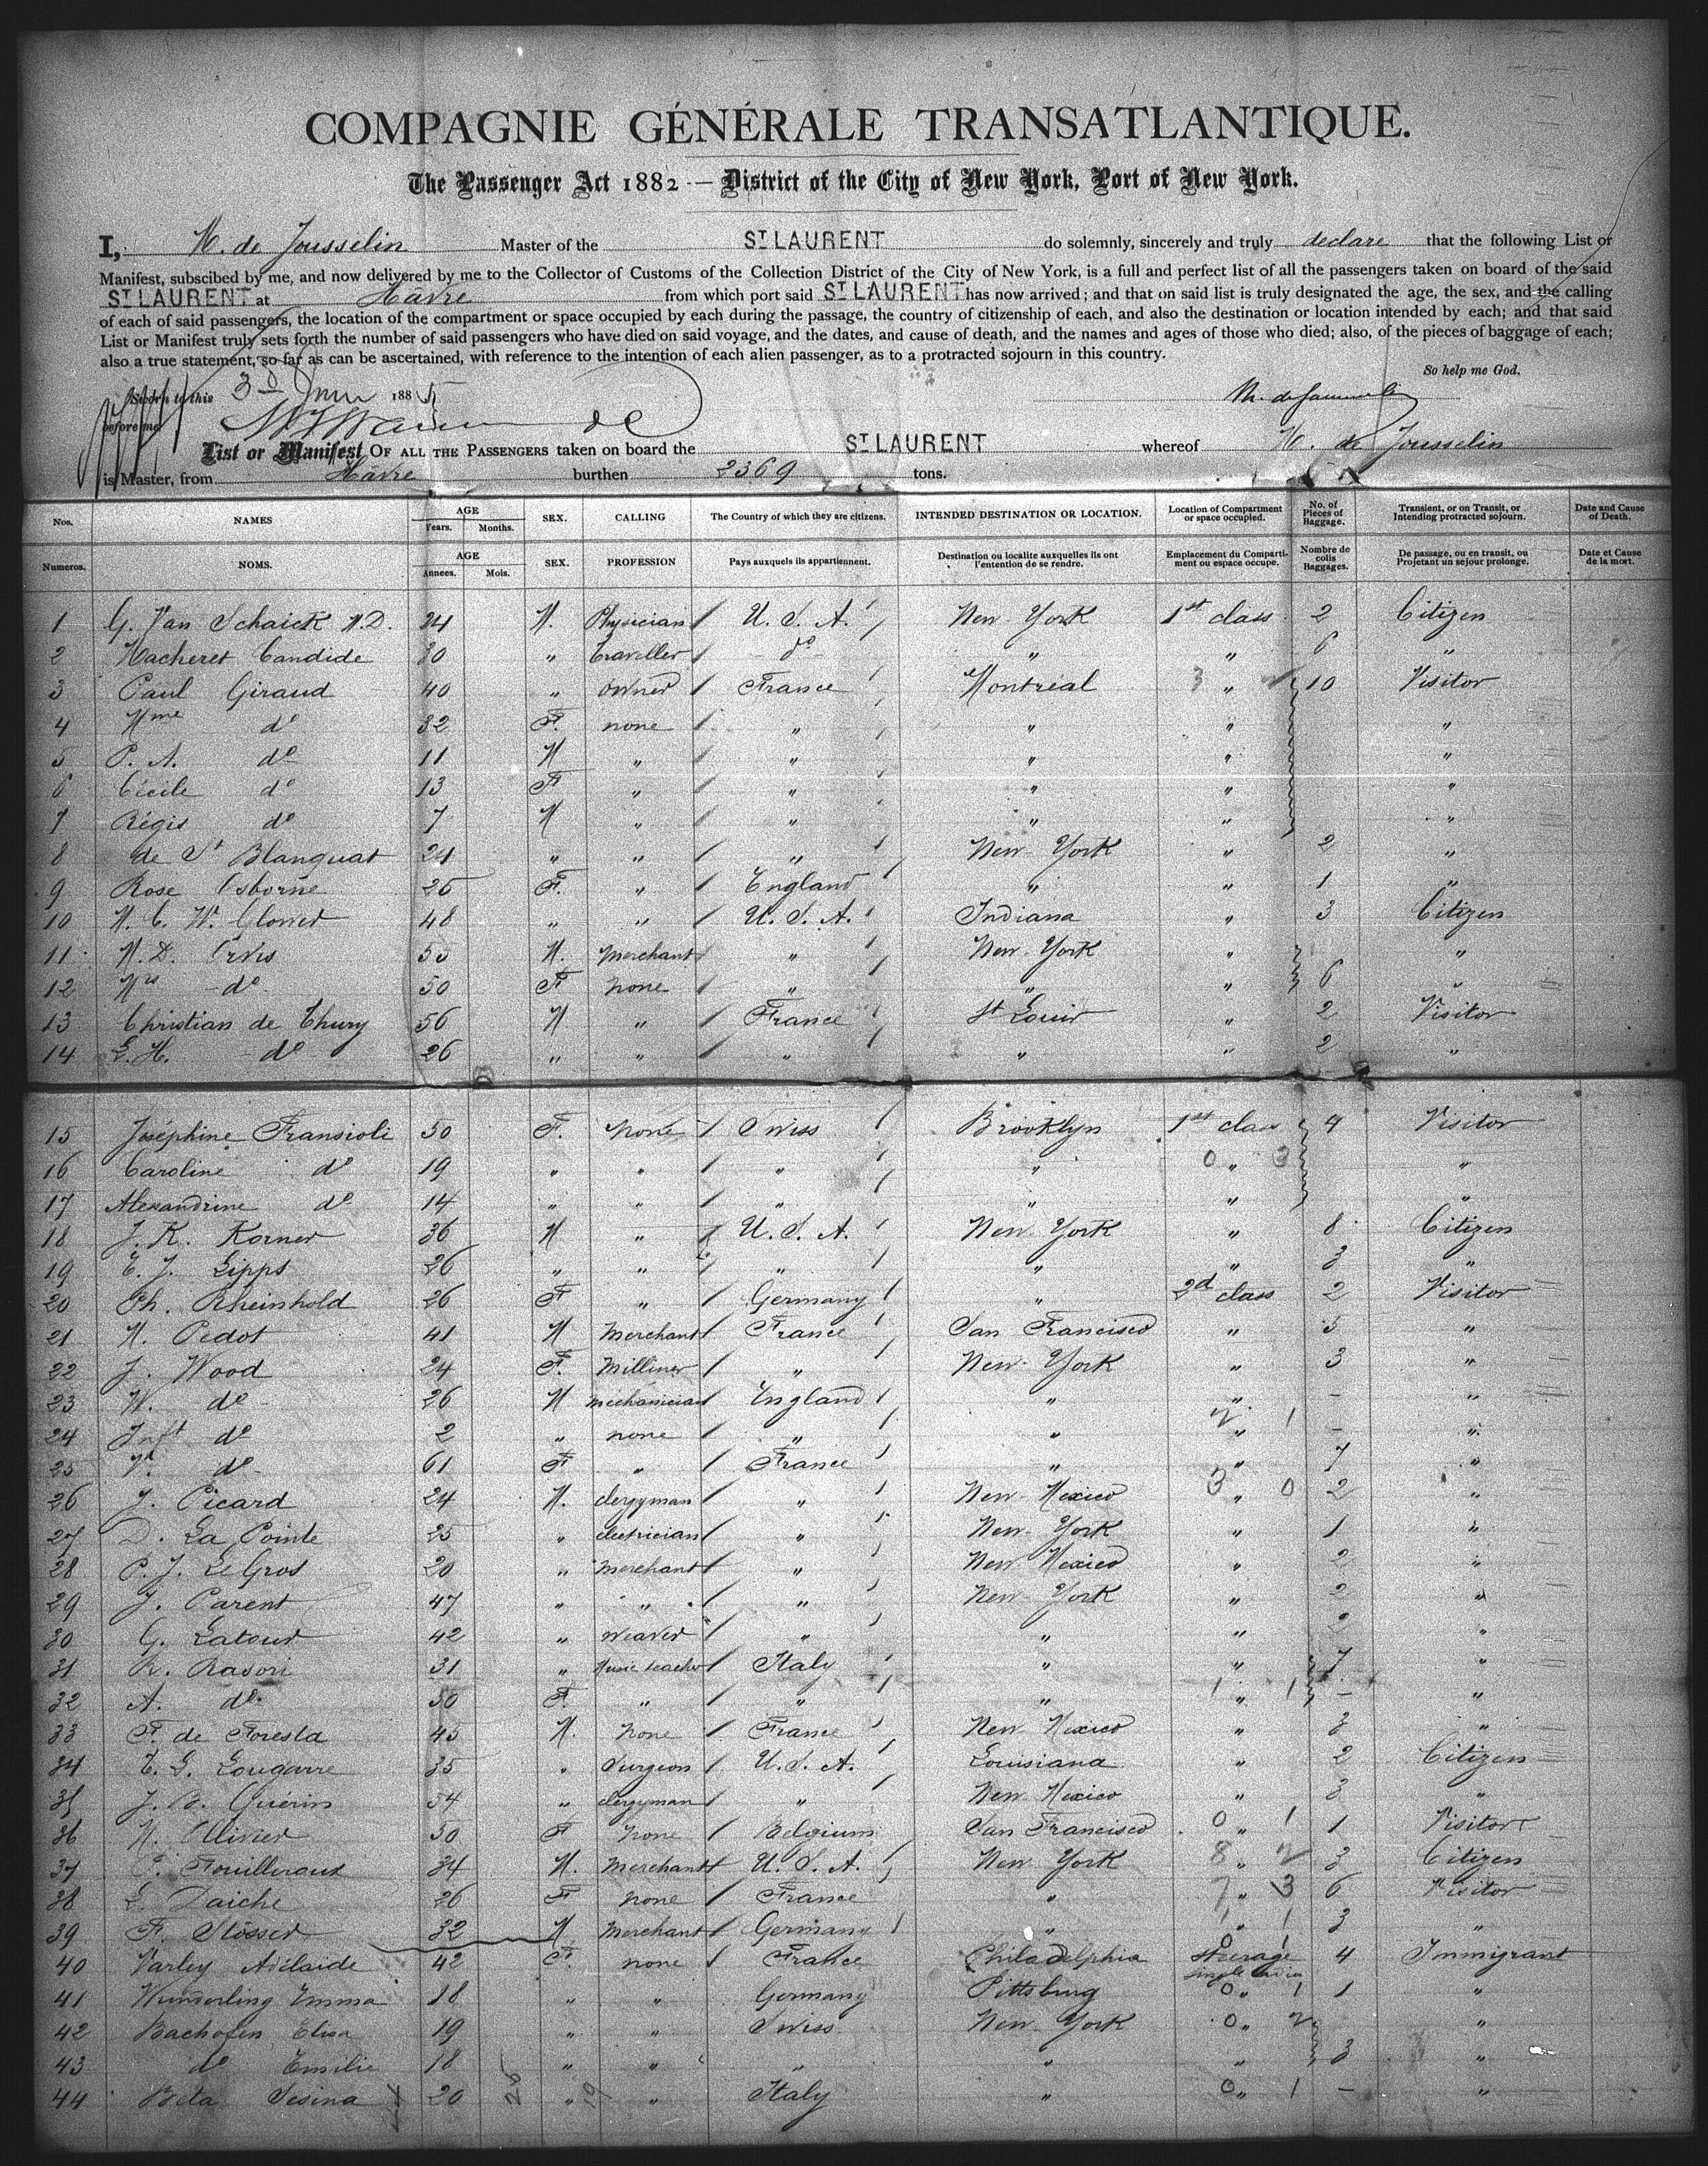 COMPAGNIE GÉNÉRALE TRANSATLANTIQUE.
The Passenger Act 1882 — District of the City of New York, Port of New York.
I, M. de Jousselin Master of the ST LAURENT do solemnly, sincerely and truly declare that the following List or
Manifest, subscibed by me, and now delivered by me to the Collector of Customs of the Collection District of the City of New York, is a full and perfect list of all the passengers taken on board of the said
ST LAURENT at Hâvre from which port said ST LAURENT has now arrived; and that on said list is truly designated the age, the sex, and the calling
of each of said passengers, the location of the compartment or space occupied by each during the passage, the country of citizenship of each, and also the destination or location intended by each; and that said
List or Manifest truly sets forth the number of said passengers who have died on said voyage, and the dates, and cause of death, and the names and ages of those who died; also, of the pieces of baggage of each;
also a true statement, so far as can be ascertained, with reference to the intention of each alien passenger, as to a protracted sojourn in this country.
So help me God.
Sworn to this 3d 1885
before me
List or Manifest OF ALL THE PASSENGERS taken on board the ST LAURENT whereof M. de Jousselin
is Master, from Hâvre burthen 2369 tons.
Nos. NAMES AGE Years. Months. SEX. CALLING The Country of which they are citizens. INTENDED DESTINATION OR LOCATION. Location of Compartment or space occupied. No. of Pieces of Baggage. Transient, or on Transit, or Intending protracted sojourn. Date and Cause of Death.
Numeros. NOMS. AGE Annees. Mois. SEX. PROFESSION Pays auxquels ils appartiennent. Destination ou localite auxquelles ils ont l'entention de se rendre. Emplacement du Compartiment ou espace occupe. Nombre de colis Baggages. De passage, ou en transit, ou Projetant un sejour prolonge. Date et Cause de la mort.
1 G. Van Schaick M.D. 24 M. Physician U.S.A. New York 1st class 2 Citizen
2 Macheret Candide 30 " Traveller do " " 6 "
3 Paul Giraud 40 " owner France Montreal 3 " 10 Visitor
4 Mme do 32 F. none " " " "
5 P. A. do 11 M " " " " "
6 Cécile do 13 F " " " " "
7 Régis do 7 M " " " " "
8 de St Blanquat 24 " " " New York " 2 "
9 Rose Osborne 25 F. " England " " 1 "
10 M. C. W. Glover 48 " " U.S.A. Indiana " 3 Citizen
11 M. D. Orvis 55 M. Merchant " New York " "
12 Mrs do 50 F none " " " 6 "
13 Christian de Thury 56 M " France St Louis " 2 Visitor
14 E. H. do 26 " " " " " 2 "
15 Joséphine Fransioli 50 F. none Swiss Brooklyn 1st class 4 Visitor
16 Caroline do 19 " " " " 0 " 3 "
17 Alexandrine do 14 " " " " " "
18 J. K. Korner 36 M " U.S.A. New York " 8 Citizen
19 E. J. Lipps 26 " " " " " 3 "
20 Ph. Rheinhold 26 F " Germany " 2d class 2 Visitor
21 M. Pedot 41 M Merchant France San Francisco " 5 "
22 J. Wood 24 F. Milliner " New York " 3 "
23 W. do 26 M mechanician England " " - "
24 Inft do 2 " none " " 2 " 1 - "
25 V. do 61 F " France " " 7 "
26 J. Picard 24 M. clergyman " New Mexico 3 " 0 2 "
27 D. La Pointe 25 " electrician " New York " 1 "
28 P. J. LeGros 20 " merchant " New Mexico " 2 "
29 J. Parent 47 " " " New York " 2 "
30 G. Latour 42 " weaver " " " 2 "
31 R. Rasori 31 " Music teacher Italy " " 7 "
32 A. do 50 F. " " " 1 " 1 - "
33 F. de Foresta 45 M. none France New Mexico " 3 "
34 E. G. Lougarre 35 " Surgeon U.S.A. Louisiana " 2 Citizen
35 J. B. Guérin 54 " clergyman " New Mexico " 3 "
36 M. Ollivier 50 F none Belgium San Francisco 0 " 1 1 Visitor
37 Fouilleroux 34 M. Merchant U.S.A. New York 8 " 2 3 Citizen
38 L. Daiche 26 F none France " 7 " 3 6 Visitor
39 F. Stösser 32 M Merchant Germany " 1 " 1 3 "
40 Varley Adélaide 42 F. none France Philadelphia 0 1 steerage 4 Immigrant
41 Wunderling Emma 18 " " Germany Pittsburg 0 " 1 1 "
42 Bachofen Elisa 19 " " Swiss New York 0 " 2 "
43 do Emilie 18 " " " " " 3 "
44 Beta Sesina 20 " " Italy " 0 " 1 - "